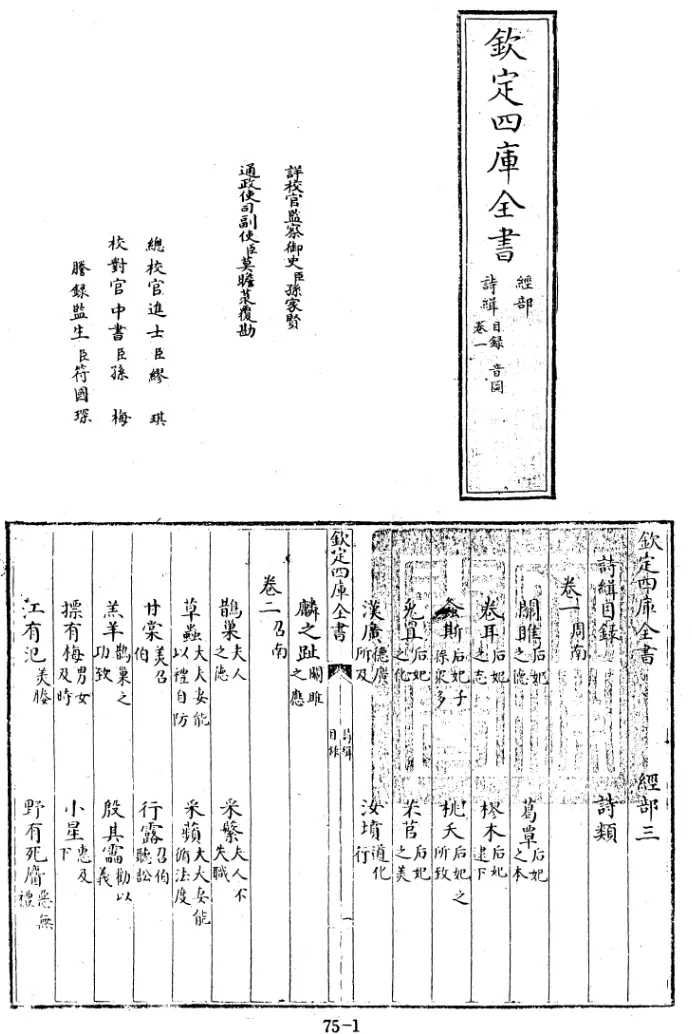 欽定四庫全書
經部
詩緝
目錄 音圖
卷一
詳校官監察御史臣孫家賢
通政使司副使臣莫瞻菉覆勘
總校官進士臣繆琪
校對官中書臣孫梅
謄錄監生臣符國琛
欽定四庫全書 經部三
詩緝目錄 詩類
卷一 周南
關雎 后妃之德 葛覃 后妃之本
卷耳 后妃之志 樛木 后妃逮下
螽斯 后妃子孫衆多 桃夭 后妃之所致
兔罝 后妃之化 芣苢 后妃之美
漢廣 德廣所及 汝墳 道化行
欽定四庫全書
詩緝
目錄
一
麟之趾 關雎之應
卷二 召南
鵲巢 夫人之德 采蘩 夫人不失職
草蟲 大夫妻能以禮自防 采蘋 大夫妻能循法度
甘棠 美召伯 行露 召伯聽訟
羔羊 鵲巢之功致 殷其靁 勸以義
摽有梅 男女及時 小星 惠及下
江有汜 美媵 野有死麕 惡無禮
75-1